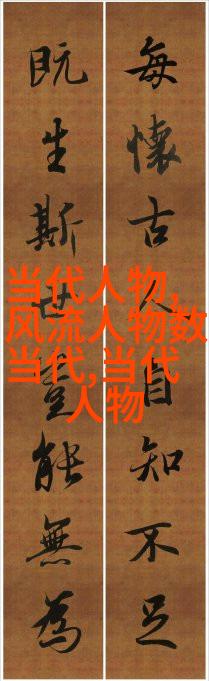 每懷古人自知不足
既生斯世豈能無為
当代人物,
风流人物数
当代,当代
人物